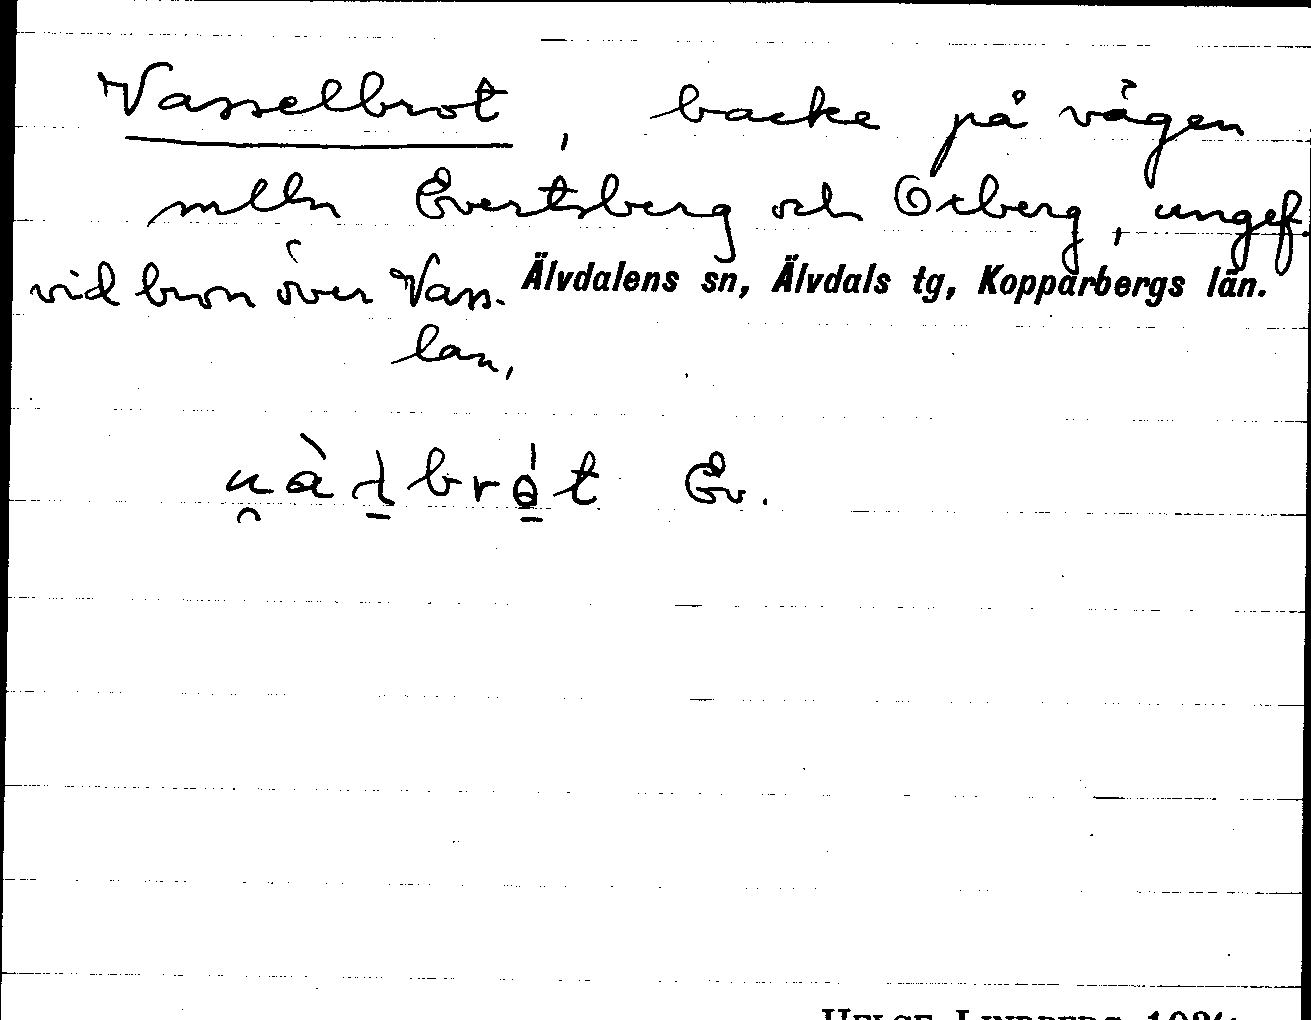 Vasselbrot, backe på vägen
melln Evertsberg och Oxberg, ungef.
vid bron över Vass-
lan,
Älvdalens sn, Älvdals tg, Kopparbergs län.
Ev.
HELGE LINDBERG